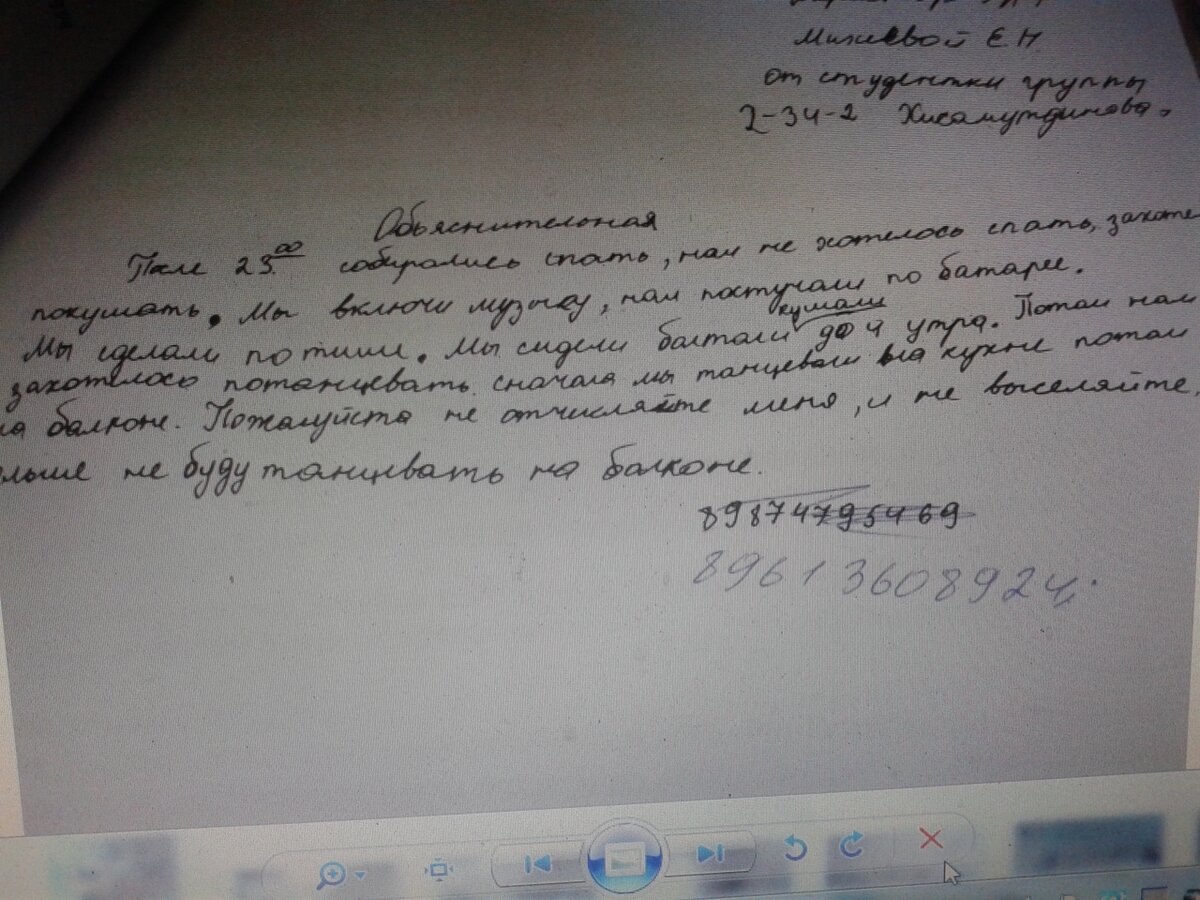 Мижевой Е Н
от студентки группы
2-34-2 Хисамутдинова.
Обьяснительная
После 23 00 собирались спать, нам не хотелось спать, захоте
покушать. Мы включи музыку, нам постучали по батарее.
Мы сделали потише. Мы сидели болтали кушали до 4 утра. Потом нам
захотелось потанцевать сначала мы танцевали на кухне потом
на балконе. Пожалуйста не отчисляйте меня, и не выселяйте,
ольше не буду танцевать на балконе.
89874795469
89613608924.